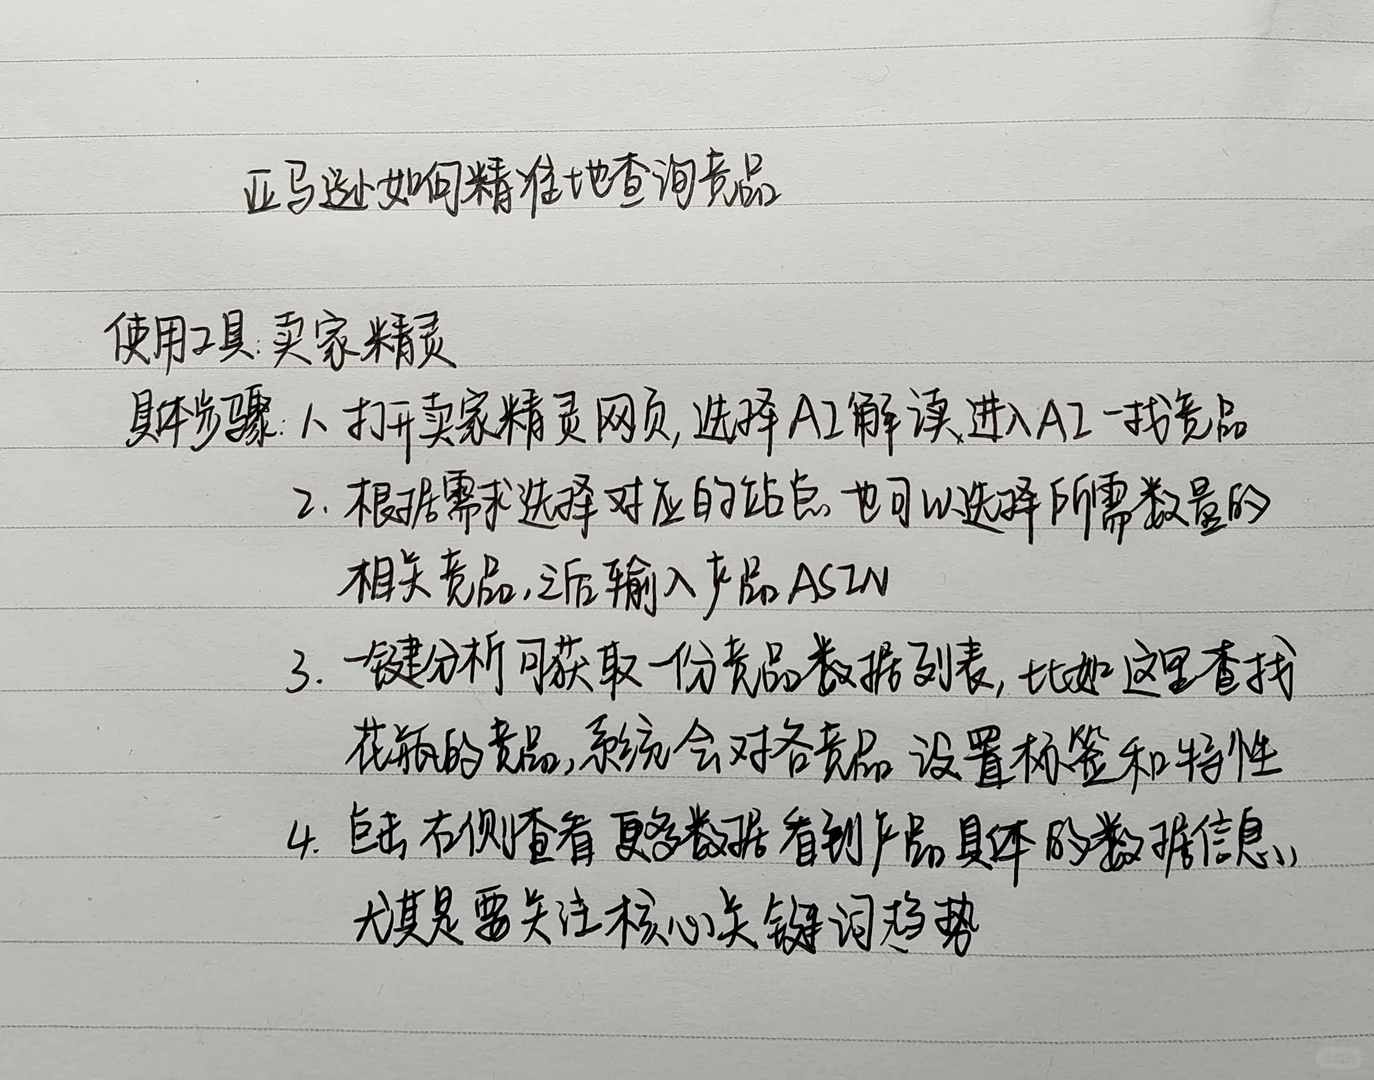 亚马逊如何精准地查询竞品
使用工具:卖家精灵
具体步骤:1、打开卖家精灵网页,选择AI解读,进入AI-找竞品
2.根据需求选择对应的站点,也可以选择所需数量的
相关竞品,之后输入产品ASIN
3.一键分析可获取一份竞品数据列表,比如这里查找
花瓶的竞品,系统会对各竞品设置标签和特性
4.点击右侧查看更多数据看到产品具体的数据信息,
尤其是要关注核心关键词趋势